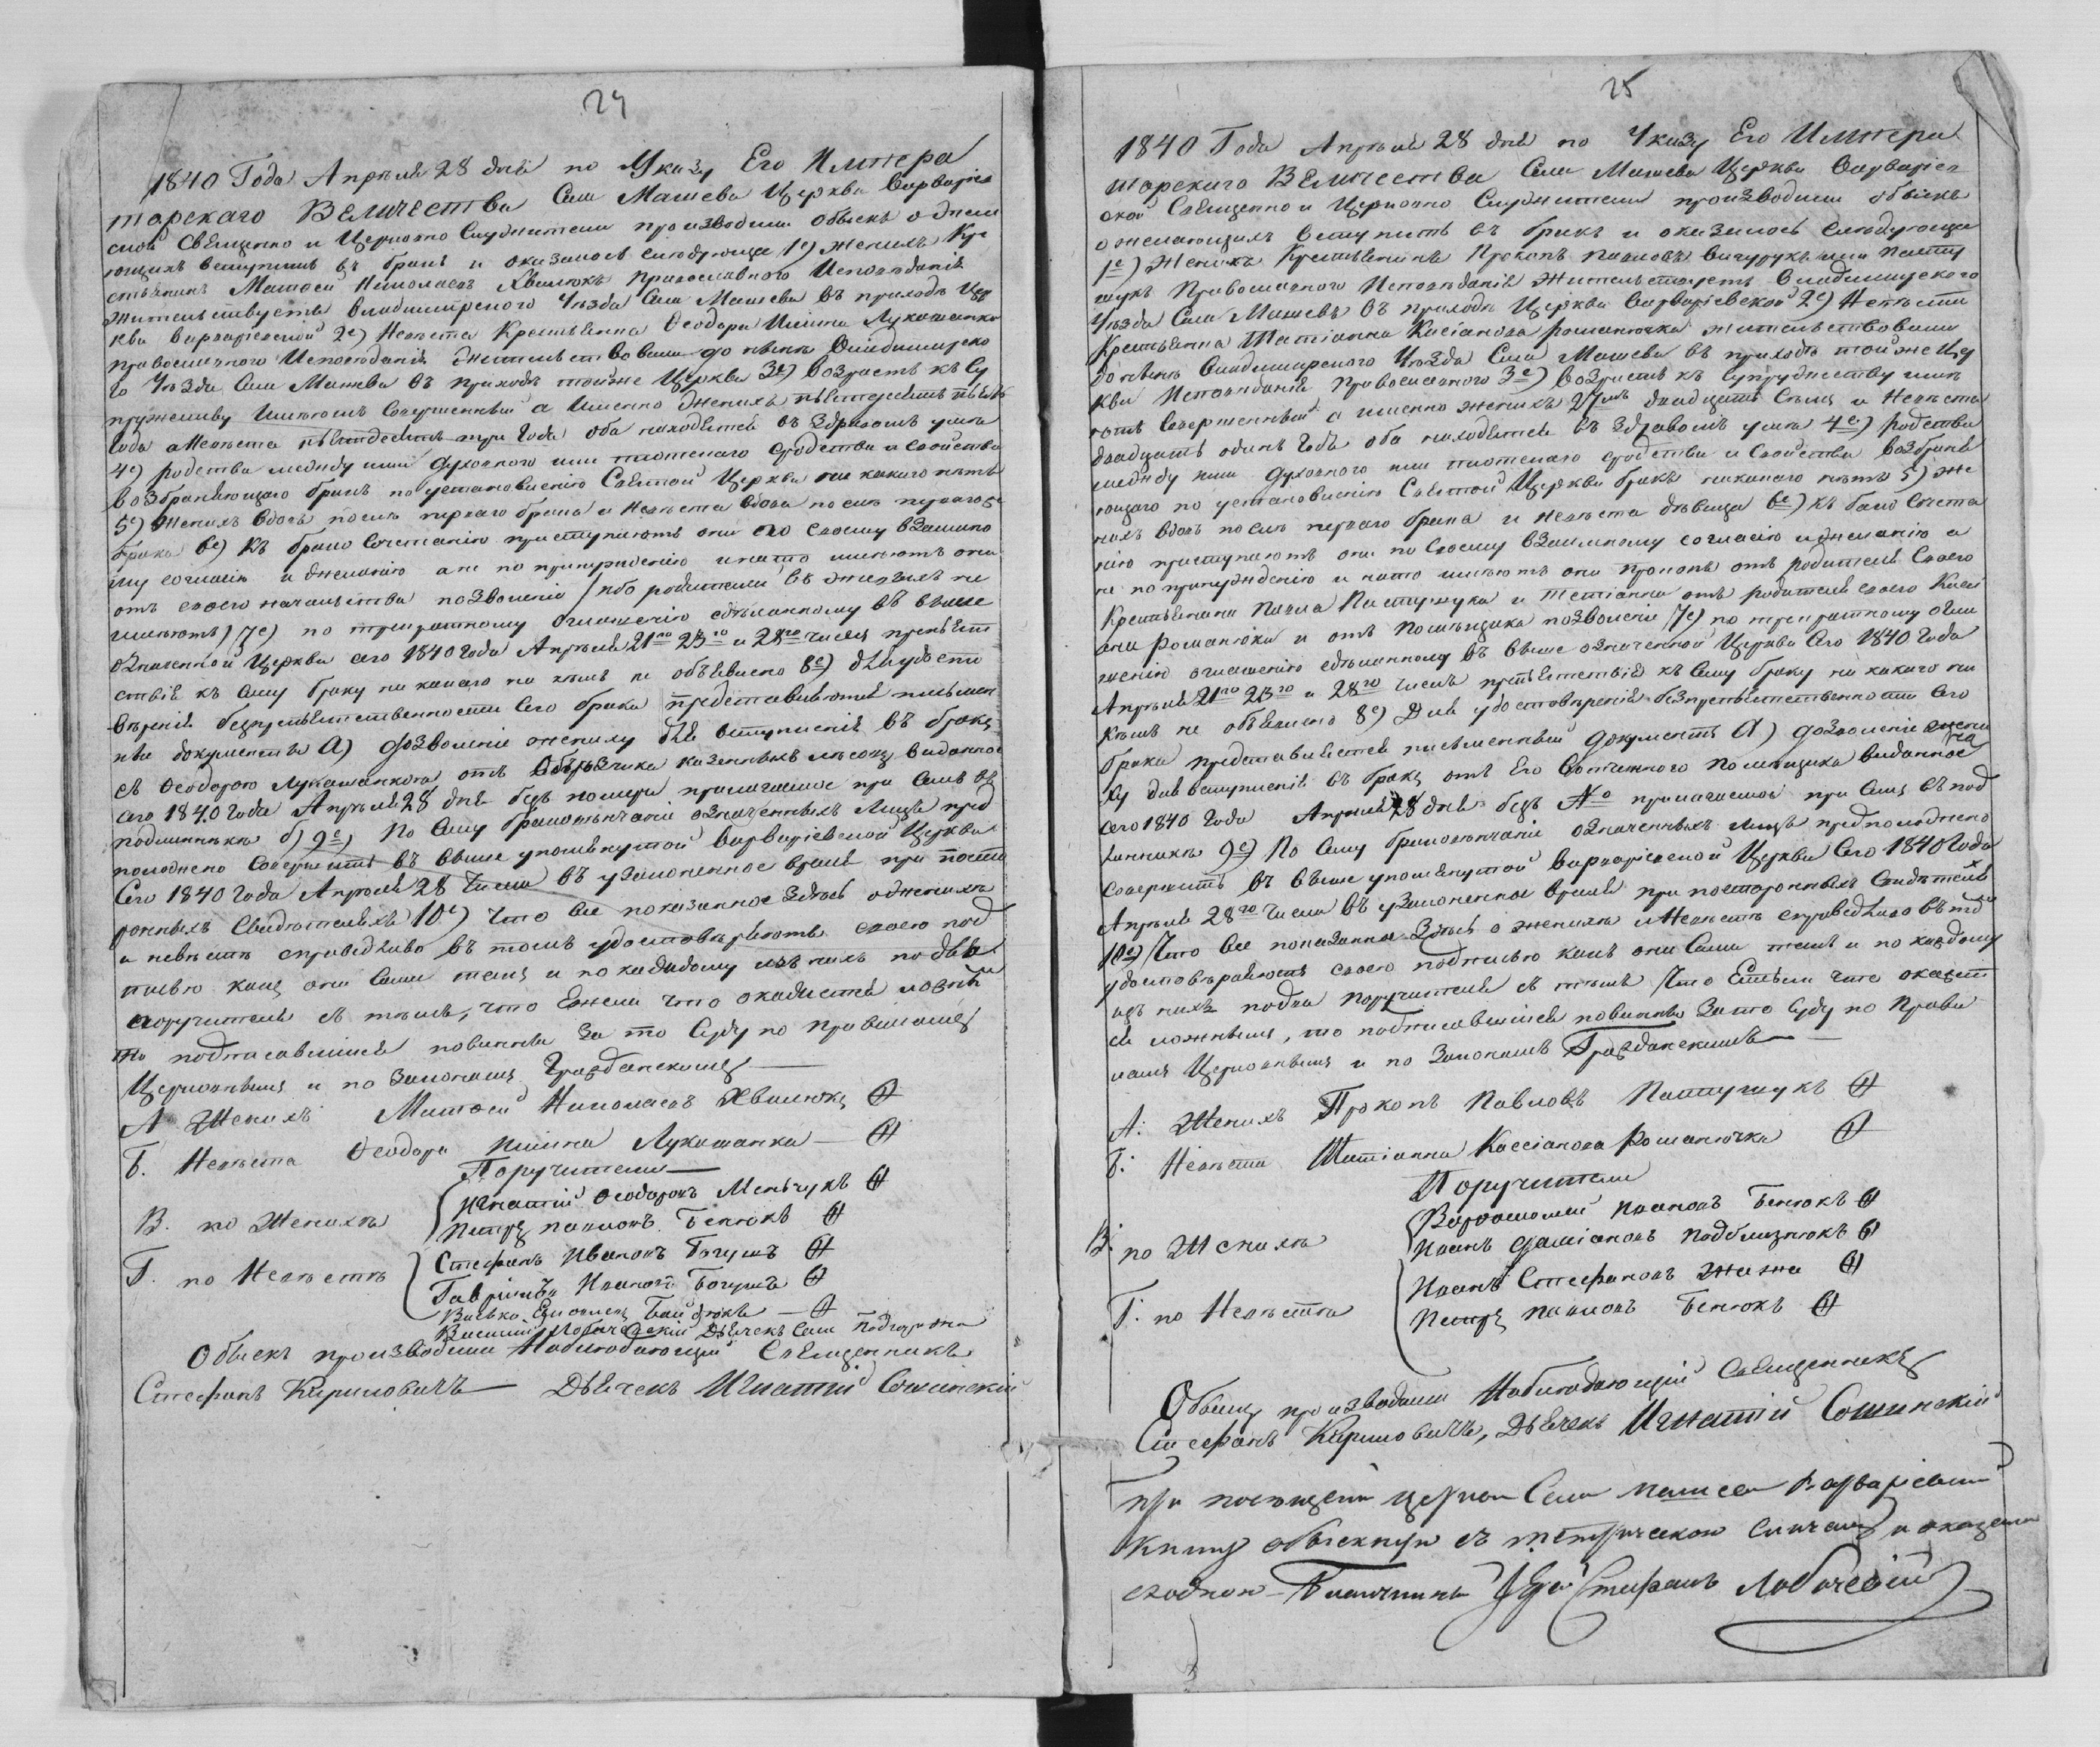 24
1840 Года Апрѣля 28 дня по Указу Его Импера
торскаго Величества Села Машева Церкви Варваріев
ской Священно и Церковно Служители производили обыскъ о желаю
ющихъ вступить въ бракъ и оказалось слѣдующе 1е) женихъ Кре
стьянинъ Матфей Николаевъ Хвилюкъ Православного Исповѣданія
Жительствуетъ Владимірского Уѣзда Села Машева въ приходѣ Цер
кви Варваріевской 2е) Невѣста Крестьянка Феодора Лукашанка
православного Исповѣданія жительствовала до нынѣ Владимірско
го Уѣзда Села Машева въ приходѣ тойже Церкви 3е) Возрастъ къ Су
пружеству имѣютъ Совершенный а Именно женихъ пятдесятъ
Года а Невѣста пятдесятъ три Года оба находятся въ здравомъ умѣ
4е) родства между ими духовного или плотскаго сродства и свойства
возбраняющаго бракъ по установленію Святой Церкви ни какого нѣтъ
5е) Женихъ вдовъ послѣ перваго брака и Невѣста вдова послѣ перваго
брака 6е) Къ брако Сочетанію приступаютъ они по своему взаимно
му согласію и желанію а не по принужденію и на то имѣютъ они
отъ своего начальства позволеніе / ибо родителей въ живыхъ не
имѣютъ) 7е) по троекратному Оглашенію сдѣланному въ выше
означенной Церкви сего 1840 года Апрѣля 21го 23го и 28го числъ препят
ствія къ сему браку ни какого ни кѣмъ не объявлено 8е) для удосто
вѣренія безпрепятственности сего брака представляются письмен
ные документы А) дозволеніе жениху для вступленія въ бракъ
съ Феодорою Лукашанкою отъ Объѣзчика казенныхъ лѣсовъ виданное
сего 1840 года Апрѣля 28 дня безъ номера прилагаемое при семъ въ
подлинникѣ 9е) По сему браковѣнчаніе означенныхъ лицъ пред
положено Совершить въ выше упомянутой Варваріевской Церкви
Сего 1840 Года Апрѣля 28 числа въ узаконенное время при посто
ронныхъ Свидѣтеляхъ 10е) Что все показанное здѣсь о женихѣ
и невѣстѣ справедливо въ томъ удостовѣряютъ своею под
писью какъ они сами такъ и по каждому изъ нихъ по два
поручителя съ тѣмъ, что Ежели что окажется ложнымъ
то подписавшіеся повинны за то Суду по правиламъ
Церковнымъ и по Законамъ Гражданскимъ
А Женихъ Матфей Николаевъ Хвилюкъ
Б. Невѣста Феодора Лукашанка
Поручители
В. по Женихѣ Игнатій Феодоровъ Мельчукъ
Петръ Павловъ Бенюкъ
Г. по Невѣстѣ Стефанъ Ивановъ Богушъ
Гавріилъ Ивановъ Богушъ
Обыскъ производили Наблюдающій Священникъ
Стефанъ Кириловичъ Дьячекъ Игнатій Сошинскій
25
1840 Года Апрѣля 28 дня по Указу Его Импера
торскаго Величества Села Машева Церкви Варваріев
ской Священно и Церковно Служители производили обыскъ
о желающихъ вступить въ бракъ и оказалось слѣдующе
1е) Женихъ Крестьянинъ Прокопъ Павловъ или Пасту
шукъ Православного Исповѣданія Жительствуетъ Владимирского
Уѣзда Села Машева въ приходѣ Церкви Варваріевской 2е) Невѣста
Крестьянка Татіанна Касіанова Романючка жительствовала
до нынѣ Владимирского Уѣзда Села Машева въ приходѣ тойже Цер
кви Исповѣданія Православного 3е) Возрастъ къ супружеству имѣ
ютъ Совершенный а именно женихъ двадцать и Невѣста
двадцать одинъ годъ оба находятся въ здравомъ умѣ 4е) родства
между ими духовного или плотскаго сродства и Свойства возбраня
ющаго по установленію Святой Церкви бракъ никакого нѣтъ 5) Же
нихъ вдовъ послѣ перваго брака и невѣста дѣвица 6е) къ брако Сочета
нію приступаютъ они по Своему взаимному согласію и желанію а
не по принужденію и на то имѣютъ они Прокопъ отъ родителя Своего
Крестьянина Павла Пастушука и Татіанна отъ родителя своего Касі
ана Романюка и отъ Помѣщика позволеніе 7е) по троекратному огла
шенію сдѣланному въ выше означенной Церкви Сего 1840 Года
Апрѣля 21го 23го и 28го числъ препятствія къ сему браку ни какого ни
кѣмъ не объявлено 8е) Для удостовѣренія безпрепятственности Сего
брака представляется письменный документъ А) дозволеніе жени
ху для вступленія въ бракъ отъ Его Вотчинного Помѣщика виданное
сего 1840 Года Апрѣля 28 дня безъ № прилагаемое при семъ въ под
линникѣ 9е) По сему браковѣнчаніе означенныхъ лицъ предположено
Совершить въ выше упомянутой Варваріевской Церкви Сего 1840 Года
Апрѣля 28го числа въ узаконенное время при посторонныхъ Свидѣтеляхъ
10е) Что все показанное здѣсь о женихѣ и Невѣстѣ справедливо въ томъ
удостовѣряютъ своею подписью какъ они Сами такъ и по каждому
изъ нихъ по два поручителя съ тѣмъ что Ежели что окажет
ся ложнымъ, то подписавшіеся повинны за то Суду по Прави
ламъ Церковнымъ и по Законамъ Гражданскимъ
А. Женихъ Прокопъ Павловъ Пастушукъ
Б. Невѣста Татіанна Кассіанова Романючка
Поручители
В. по Женихѣ Варфоломей Ивановъ Бенюкъ
Иванъ Даміановъ Подблизнюкъ
Г. по Невѣстѣ Иванъ Стефановъ
Петръ Павловъ Бенюкъ
Обыскъ производили Наблюдающій Священникъ
Стефанъ Кириловичъ, Дьячекъ Игнатій Сошинскій
При посѣщеніи церкви Села Машева Варваріевской
книгу обыскную съ метрическою сличалъ и оказалась
сходною Благочинный Іерей Стефанъ Лобачевскій